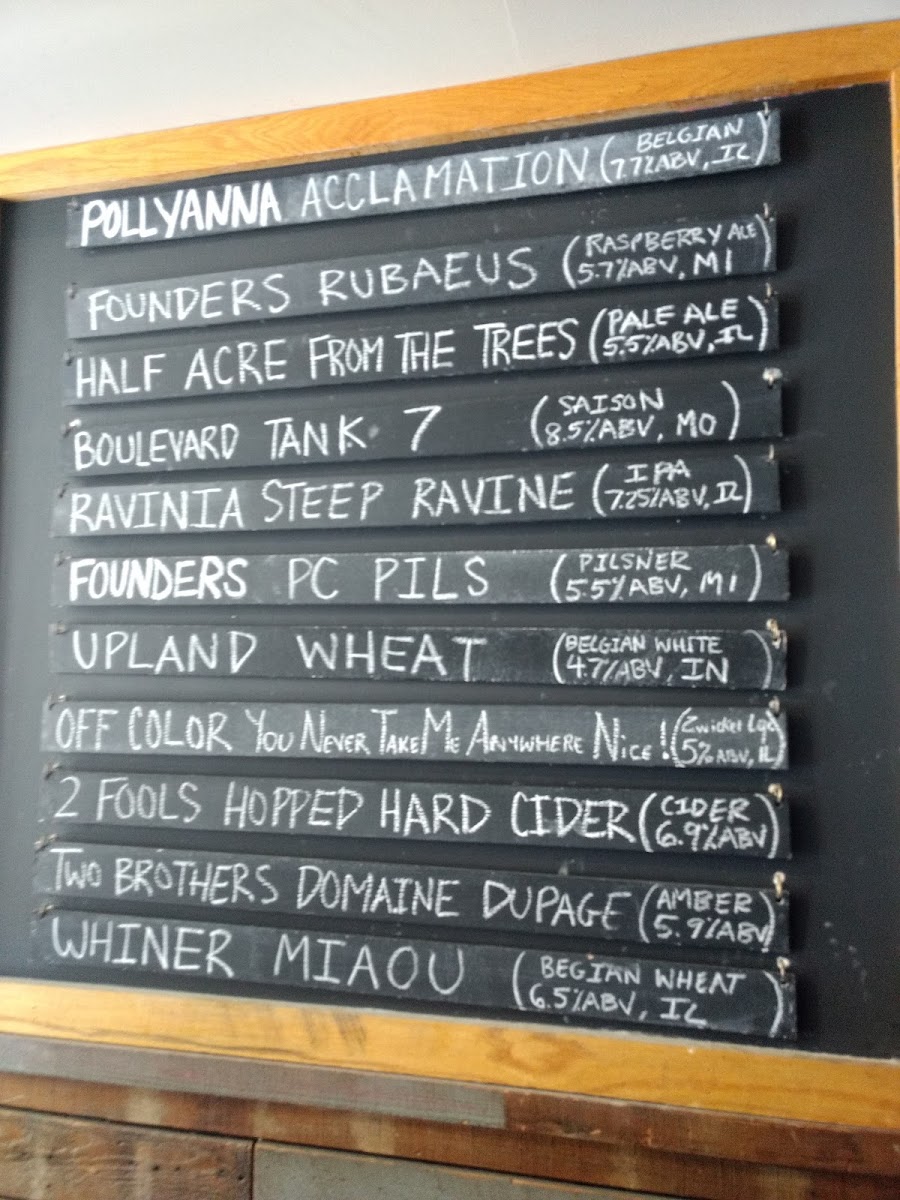 POLLYANNA ACCLAMATION (BELGIAN
7.7%ABV, IL)
FOUNDERS RUBAEUS (RASPBERRY ALE
5.7%ABV, MI)
HALF ACRE FROM THE TREES (PALE ALE
5.5%ABV, IL)
BOULEVARD TANK 7 (SAISON
8.5%ABV, MO)
RAVINIA STEEP RAVINE (IPA
7.25%ABV, IL)
FOUNDERS PC PILS (PILSNER
5.5%ABV, MI)
UPLAND WHEAT (BELGIAN WHITE
4.7%ABV, IN)
OFF COLOR YOU NEVER TAKE ME ANYWHERE NICE! (Zwickel
5% ABV, IL)
2 FOOLS HOPPED HARD CIDER (CIDER
6.9%ABV)
TWO BROTHERS DOMAINE DUPAGE (AMBER
5.9%ABV)
WHINER MIAOU (BEGIAN WHEAT
6.5%ABV, IL)